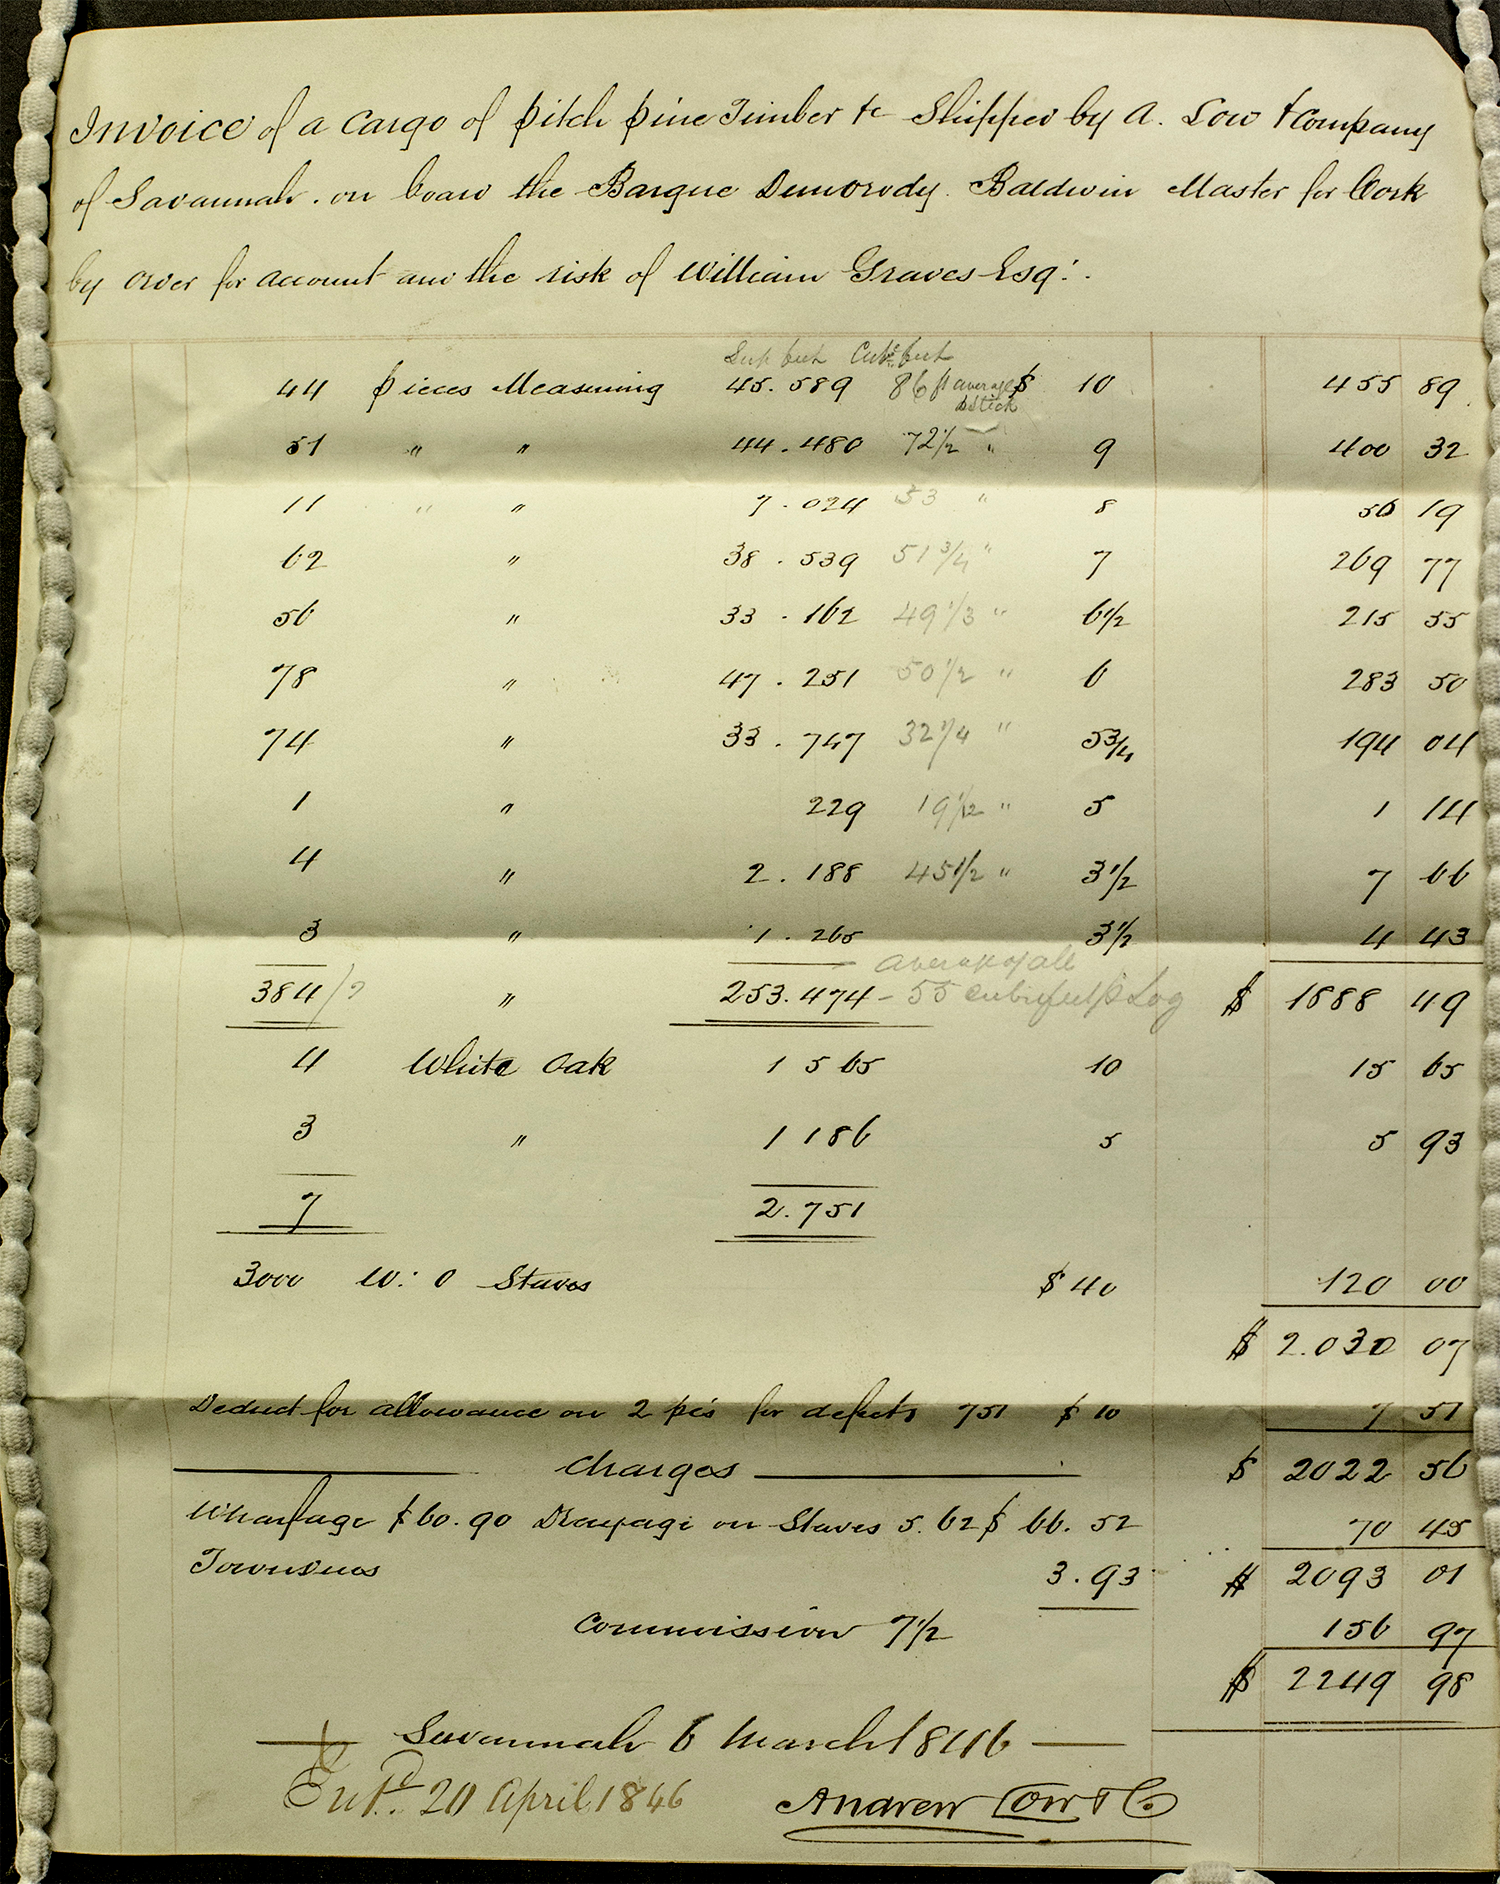 Invoice of a Cargo of pitch pine Timber &c Shipped by A. Low & Company
of Savannah. on board the Barque Dunbrody. Baldwin Master for Cork
by order for account and the risk of William Graves Esqr.
Sup feet Cubc feet
44 pieces Measuring 45.589 86 ft average $ 10 455 89
stick
51 " " 44.480 72 1/2 " 9 400 32
11 " " 7.024 53 " 8 56 19
62 " 38.539 51 3/4 " 7 269 77
56 " 33.162 49 1/3 " 6 1/2 215 55
78 " 47.251 50 1/2 " 6 283 50
74 " 33.747 32 1/4 " 5 3/4 194 04
1 " 229 19 1/2 " 5 1 14
4 " 2.188 45 1/2 " 3 1/2 7 66
3 " 1.265 3 1/2 4 43
average of all
384 " 253.474 - 55 cubic feet p Log $ 1888 49
4 White Oak 1 565 10 15 65
3 " 1 186 5 5 93
7 2.751
3000 W: O Staves $ 40 120 00
$ 2.030 07
Deduct for allowance on 2 pcs for defects 751 $ 10 7 51
Charges $ 2022 56
Wharfage $ 60.90 Drayage on Staves 5.62 $ 66.52 70 45
3.93 $ 2093 01
Commission 7 1/2 156 97
$ 2249 98
Savannah 6 March 1846
Entd. 20 April 1846 Andrew Low & Co